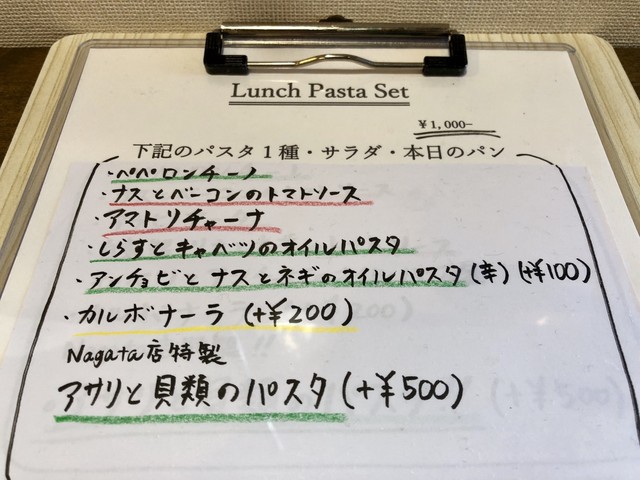 Lunch Pasta Set
¥1,000-
下記のパスタ1種・サラダ・本日のパン
・ペペロンチーノ
・ナスとベーコンのトマトソース
・アマトリチャーナ
・しらすとキャベツのオイルパスタ
・アンチョビとナスとネギのオイルパスタ(辛)(+¥100)
・カルボナーラ (+¥200)
Nagata店特製
アサリと貝類のパスタ(+¥500)